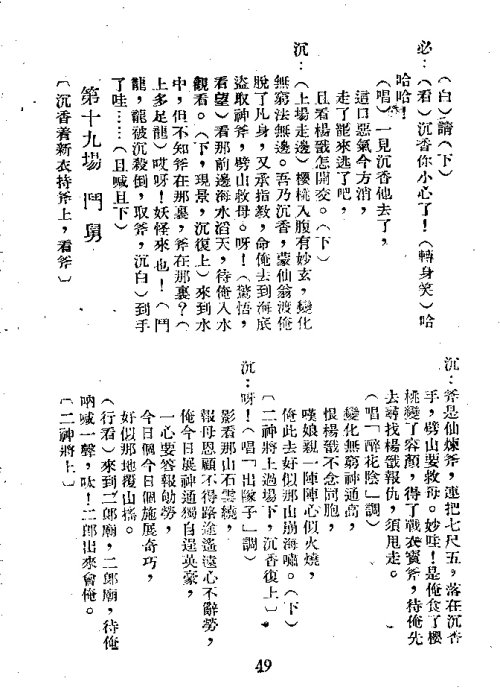 （白）請（下）
必：（看）沉香你小心了！（轉身笑）哈
哈哈！
（唱）一見沉香他去了，
這口惡氣今方消，
走了罷來逃了吧，
且看楊戩怎開交。（下）
沉：（上場走邊）櫻桃入腹有妙玄，變化
無窮法無邊。吾乃沉香，蒙仙翁渡俺
脫了凡身，又承指教，命俺去到海底
盜取神斧，劈山救母。呀！（驚悟，
看望）看那前邊海水滔天，待俺入水
觀看。（下，現景，沉復上）來到水
中，但不知斧在那裏，斧在那裏？（
上多足龍）哎呀！妖怪來也！（鬥
龍，龍被沉殺倒，取斧，沉白）到手
了哇……（且喊且下）
第十九場　鬥舅
〔沉香着新衣持斧上，看斧〕
沉：斧是仙煉斧，連把七尺五，落在沉香
手，劈山要救母。妙哇！是俺食了櫻
桃變了容顏，得了戰衣寳斧，待俺先
去尋找楊戩報仇，須甩走。
（唱「醉花陰」調）
變化無窮神通高，
恨楊戩不念同胞，
嘆娘親一陣陣心似火燒，
俺此去好似那山崩海嘯。（下）
〔二神將上過場下，沉香復上〕
沉：呀！（唱「出隊子」調）
影看那山石雲繞，
報母恩顧不得路途遙遠心不辭勞，
俺今日展神通獨自逞英豪，
一心要答報劬勞，
今日個今日個施展奇巧，
好似那地覆山搖。
（行看）來到二郎廟，二郎廟，待俺
吶喊一聲，呔！二郎出來會俺。
〔二神將上〕
49